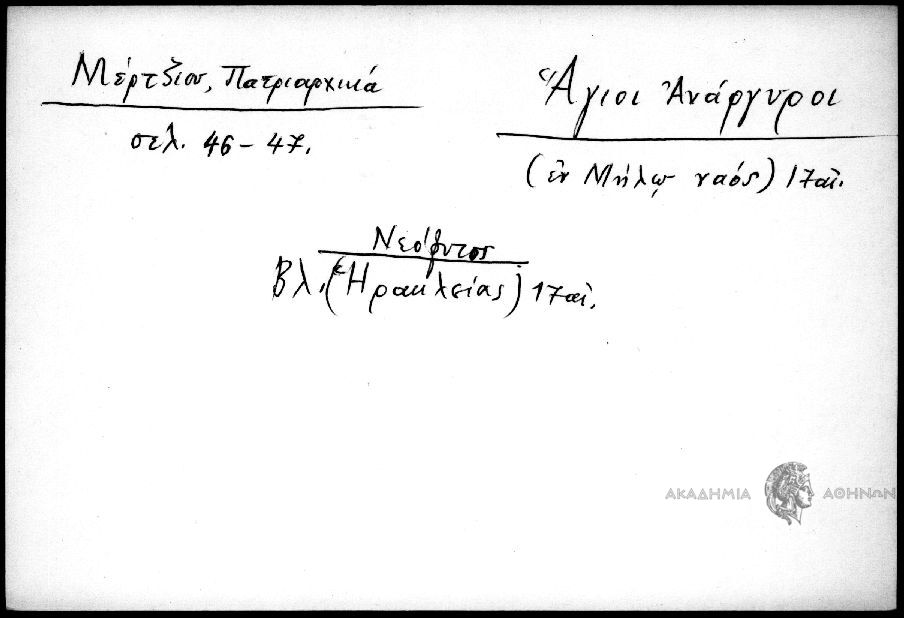 Μέρτζιου, Πατριαρχικά
σελ. 46-47.
Ἅγιοι Ἀνάργυροι
(ἐν Μήλῳ ναός) 17αἰ.
Νεόφυτος
Βλ. (Ἡρακλείας) 17αἰ.
ΑΚΑΔΗΜΙΑ ΑΘΗΝΩΝ